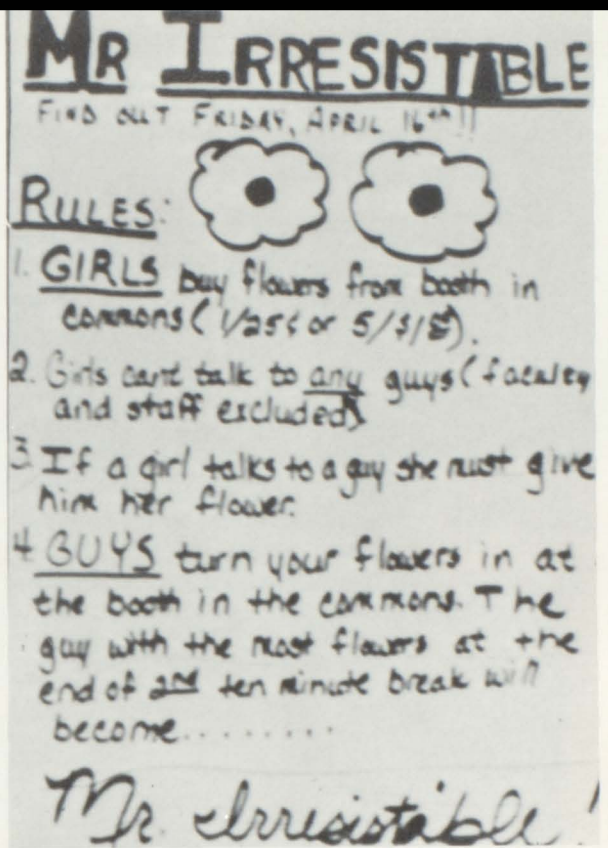 MR IRRESISTABLE
FIND OUT FRIDAY, APRIL 16th!!
RULES:
1. GIRLS buy flowers from booth in
commons (1/25¢ or 5/$1
2. Girls cant talk to any guys (faculty
and staff excluded)
3. If a girl talks to a guy she must give
him her flower.
4. GUYS turn your flowers in at
the booth in the commons. The
guy with the most flowers at the
end of 2nd ten minute break will
become.........
Mr. Irresistable!